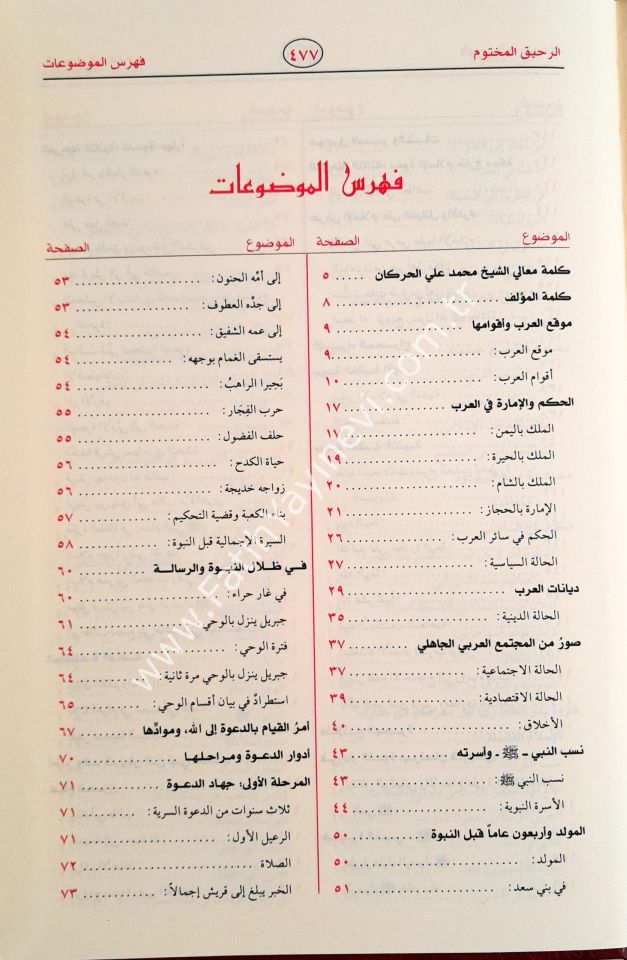 الرحيق المختوم ٤٧٧ فهرس الموضوعات
فهرس الموضوعات
الموضوع الصفحة
كلمة معالي الشيخ محمد علي الحركان ٥
كلمة المؤلف ............ ٨
موقع العرب وأقوامها ............ ٩
موقع العرب: ............ ٩
أقوام العرب: ............ ١٠
الحكم والإمارة في العرب ............ ١٧
الملك باليمن: ............ ١٧
الملك بالحيرة: ............ ١٩
الملك بالشام: ............ ٢٠
الإمارة بالحجاز: ............ ٢١
الحكم في سائر العرب: ............ ٢٦
الحالة السياسية: ............ ٢٧
ديانات العرب ............ ٢٩
الحالة الدينية: ............ ٣٥
صورٌ من المجتمع العربي الجاهلي ............ ٣٧
الحالة الاجتماعية: ............ ٣٧
الحالة الاقتصادية: ............ ٣٩
الأخلاق: ............ ٤٠
نسب النبي - ﷺ - وأسرته ............ ٤٣
نسب النبي ﷺ: ............ ٤٣
الأسرة النبوية: ............ ٤٤
المولد وأربعون عاماً قبل النبوة ............ ٥٠
المولد: ............ ٥٠
في بني سعد: ............ ٥١
الموضوع الصفحة
إلى أمِّه الحنون: ............ ٥٣
إلى جدِّه العطوف: ............ ٥٣
إلى عمه الشفيق: ............ ٥٤
يستسقى الغمام بوجهه: ............ ٥٤
بَحِيرا الراهبُ: ............ ٥٤
حرب الفِجَار: ............ ٥٥
حلف الفضول: ............ ٥٥
حياة الكدح: ............ ٥٦
زواجه خديجة: ............ ٥٦
بناء الكعبة وقضية التحكيم: ............ ٥٧
السيرة الإجمالية قبل النبوة: ............ ٥٨
في ظلال النبوة والرسالة ............ ٦٠
في غار حراء: ............ ٦٠
جبريل ينزل بالوحي: ............ ٦١
فترة الوحي: ............ ٦٤
جبريل ينزل بالوحي مرة ثانية: ............ ٦٤
استطرادٌ في بيان أقسام الوحي: ............ ٦٥
أمرُ القيام بالدعوة إلى الله، وموادِّها ............ ٦٧
أدوار الدعوة ومراحلها ............ ٧٠
المرحلة الأولى: جهاد الدعوة ............ ٧١
ثلاث سنوات من الدعوة السرية: ............ ٧١
الرعيل الأول: ............ ٧١
الصلاة ............ ٧٢
الخبر يبلغ إلى قريش إجمالاً: ............ ٧٣
www.Fatihyayinevi.com.tr